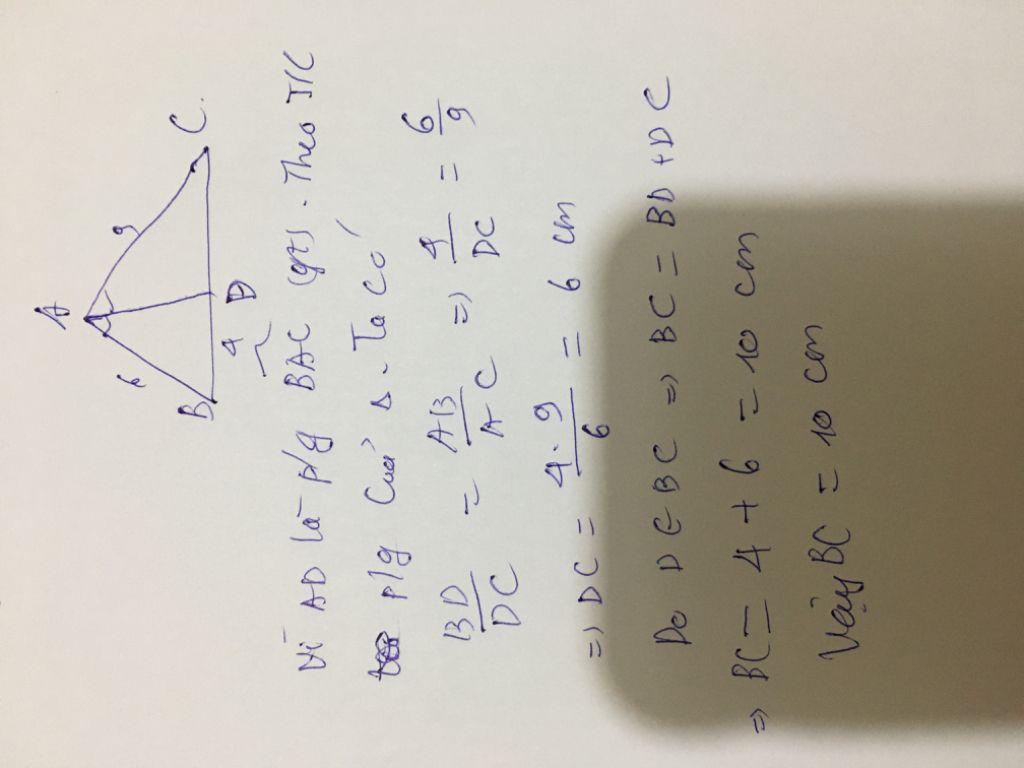 A
6
9
B
4
D
C.
Vì AD là p/g BAC (gt). Theo T/C
p/g Của Δ. Ta Có
BD/DC = AB/AC => 4/DC = 6/9
=> DC = 4.9/6 = 6 cm
Do D ∈ BC => BC = BD + DC
=> BC = 4 + 6 = 10 cm
Vậy BC = 10 cm